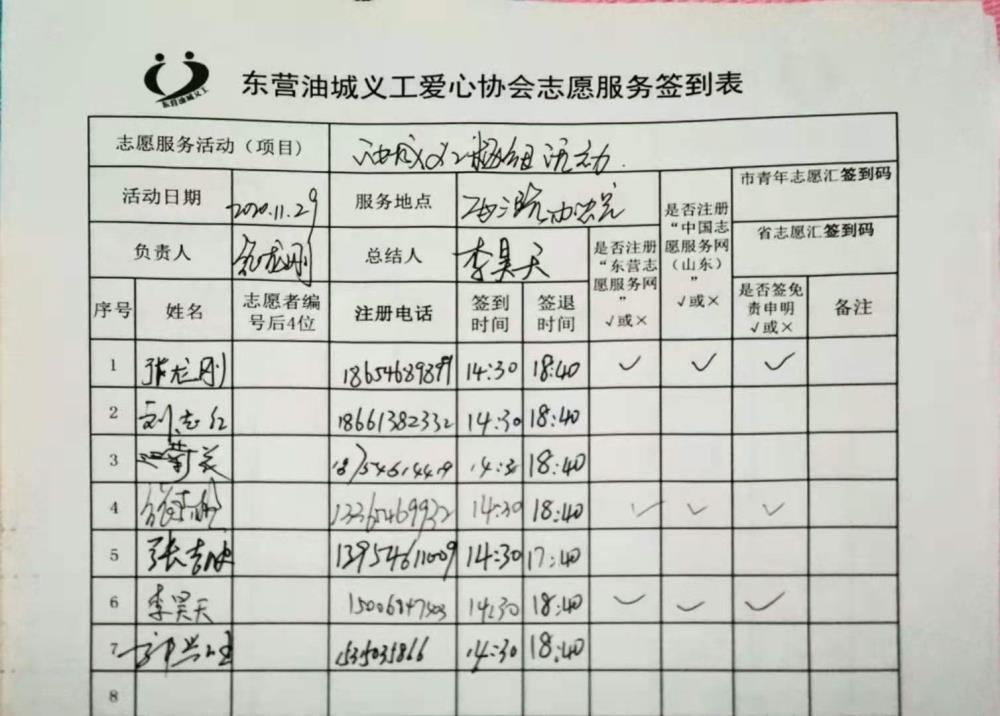 东营油城义工
东营油城义工爱心协会志愿服务签到表
志愿服务活动（项目） 油城义工 活动.
活动日期 2020.11.29 服务地点 是否注册“中国志愿服务网（山东）”√或× 市青年志愿汇签到码
负责人 龙刚 总结人 李昊天 是否注册“东营志愿服务网”√或× 省志愿汇签到码
序号 姓名 志愿者编号后4位 注册电话 签到时间 签退时间 是否签免责申明√或× 备注
1 张龙刚 14:30 18:40 ✓ ✓ ✓
2 刘志红 18661382332 14:30 18:40
3 18:40
4 13365469932 14:30 18:40 ✓ ✓ ✓
5 张吉 13954611009 14:30 17:40
6 李昊天 14:30 18:40 ✓ ✓ ✓
7 14:30 18:40
8